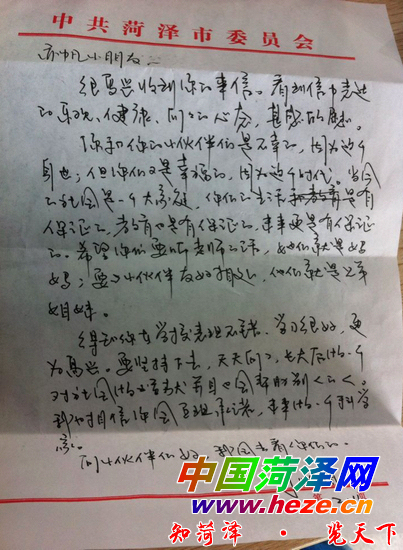 中共菏泽市委员会
小朋友:
很高兴收到你的来信。看到信中表达
的乐观、健康、向上的心态,甚感欣慰。
你和你的小伙伴们是不幸的,因为这个
身世;但你们又是幸福的,因为这个时代。当今
的社会是一个大家庭,你们的生活是有
保证的,教育也是有保证的,未来更是有保证
的。希望你们要听老师的话,她们就是妈
妈;要与小伙伴友好相处,他们就是兄弟
姐妹。
得知你在学校表现不错,学习很好,更
为高兴。要坚持下去,天天向上,长大后做一个
对社会
科学
家。
向小伙伴们问好,我会去看你们的。
中国菏泽网
www.heze.cn
知菏泽 · 览天下